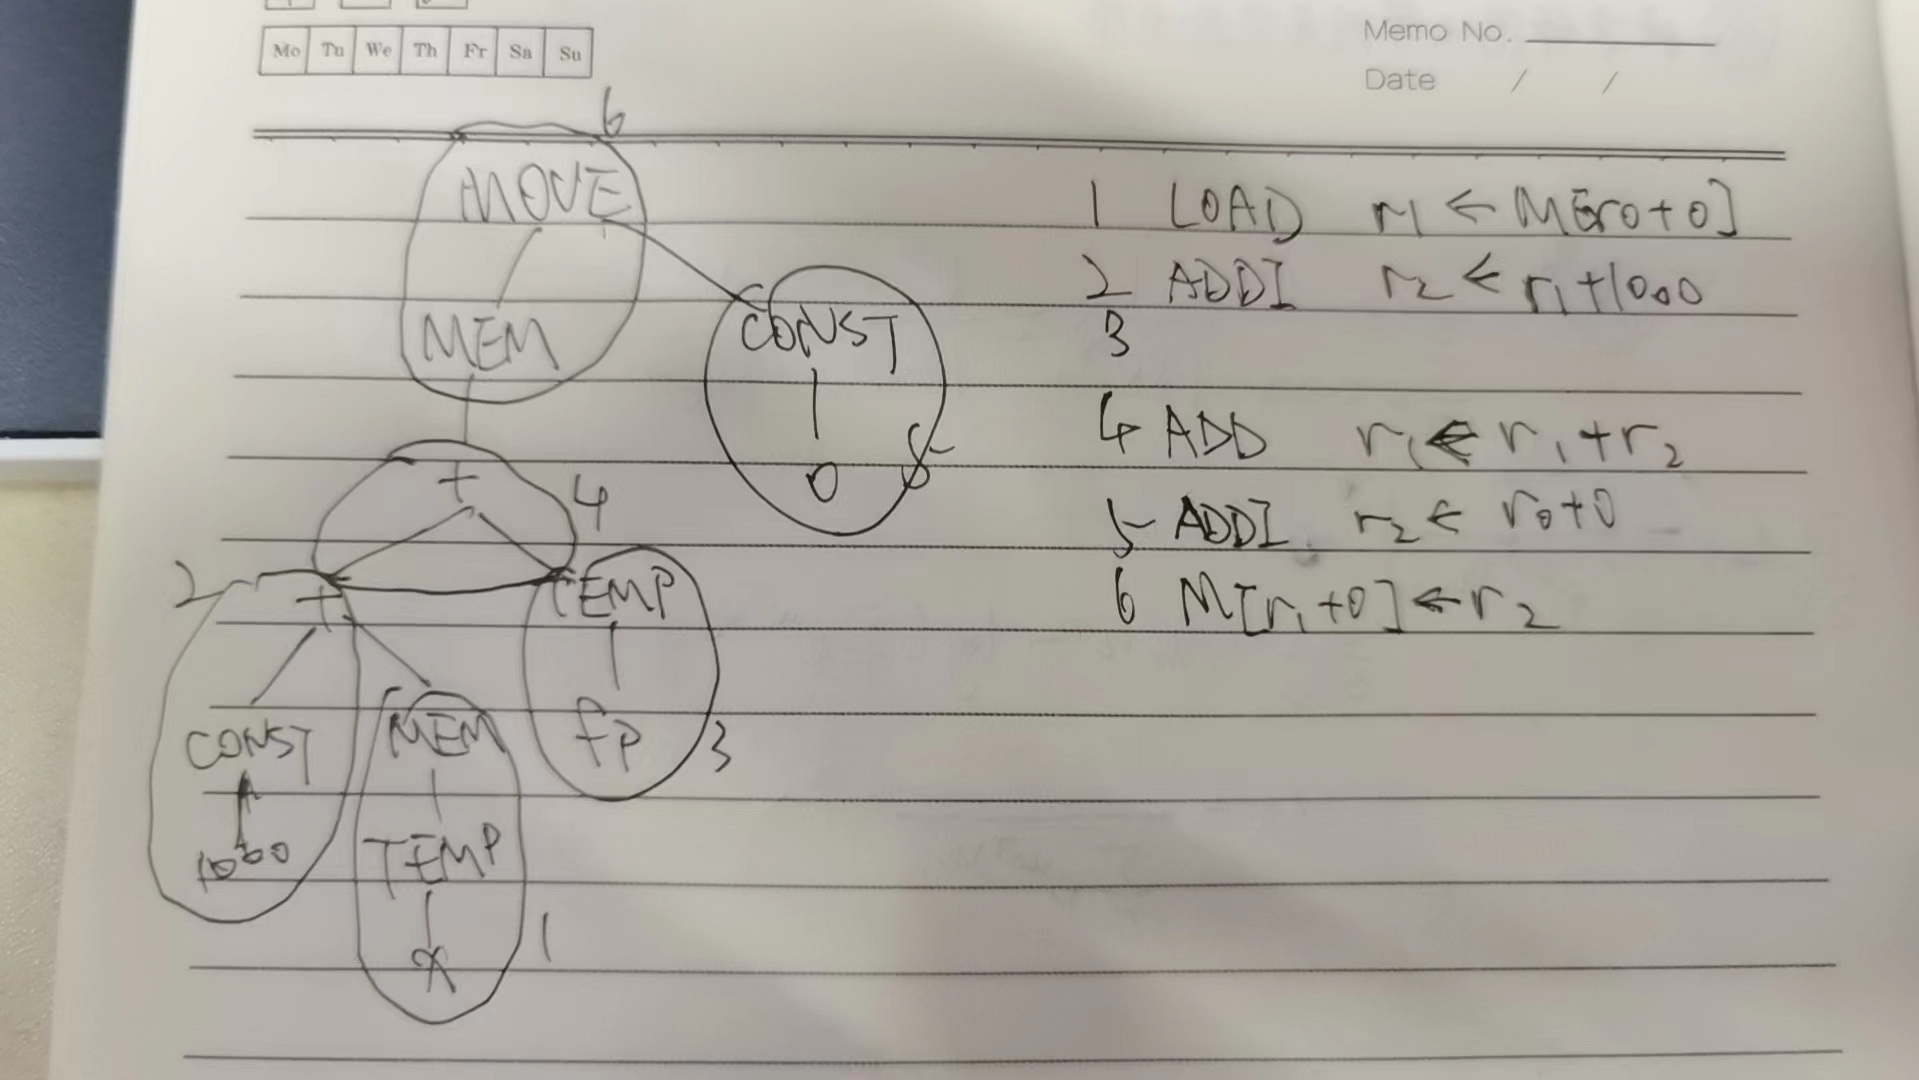 Mo Tu We Th Fr Sa Su
Memo No.
Date / /
6
MOVE
MEM
CONST
0
5
+
4
2
+
TEMP
fp
3
CONST
1000
MEM
TEMP
x
1
1 LOAD r1 ← M[r0+0]
2 ADDI r2 ← r1+1000
3
4 ADD r1 ← r1+r2
5 ADDI r2 ← r0+0
6 M[r1+0] ← r2